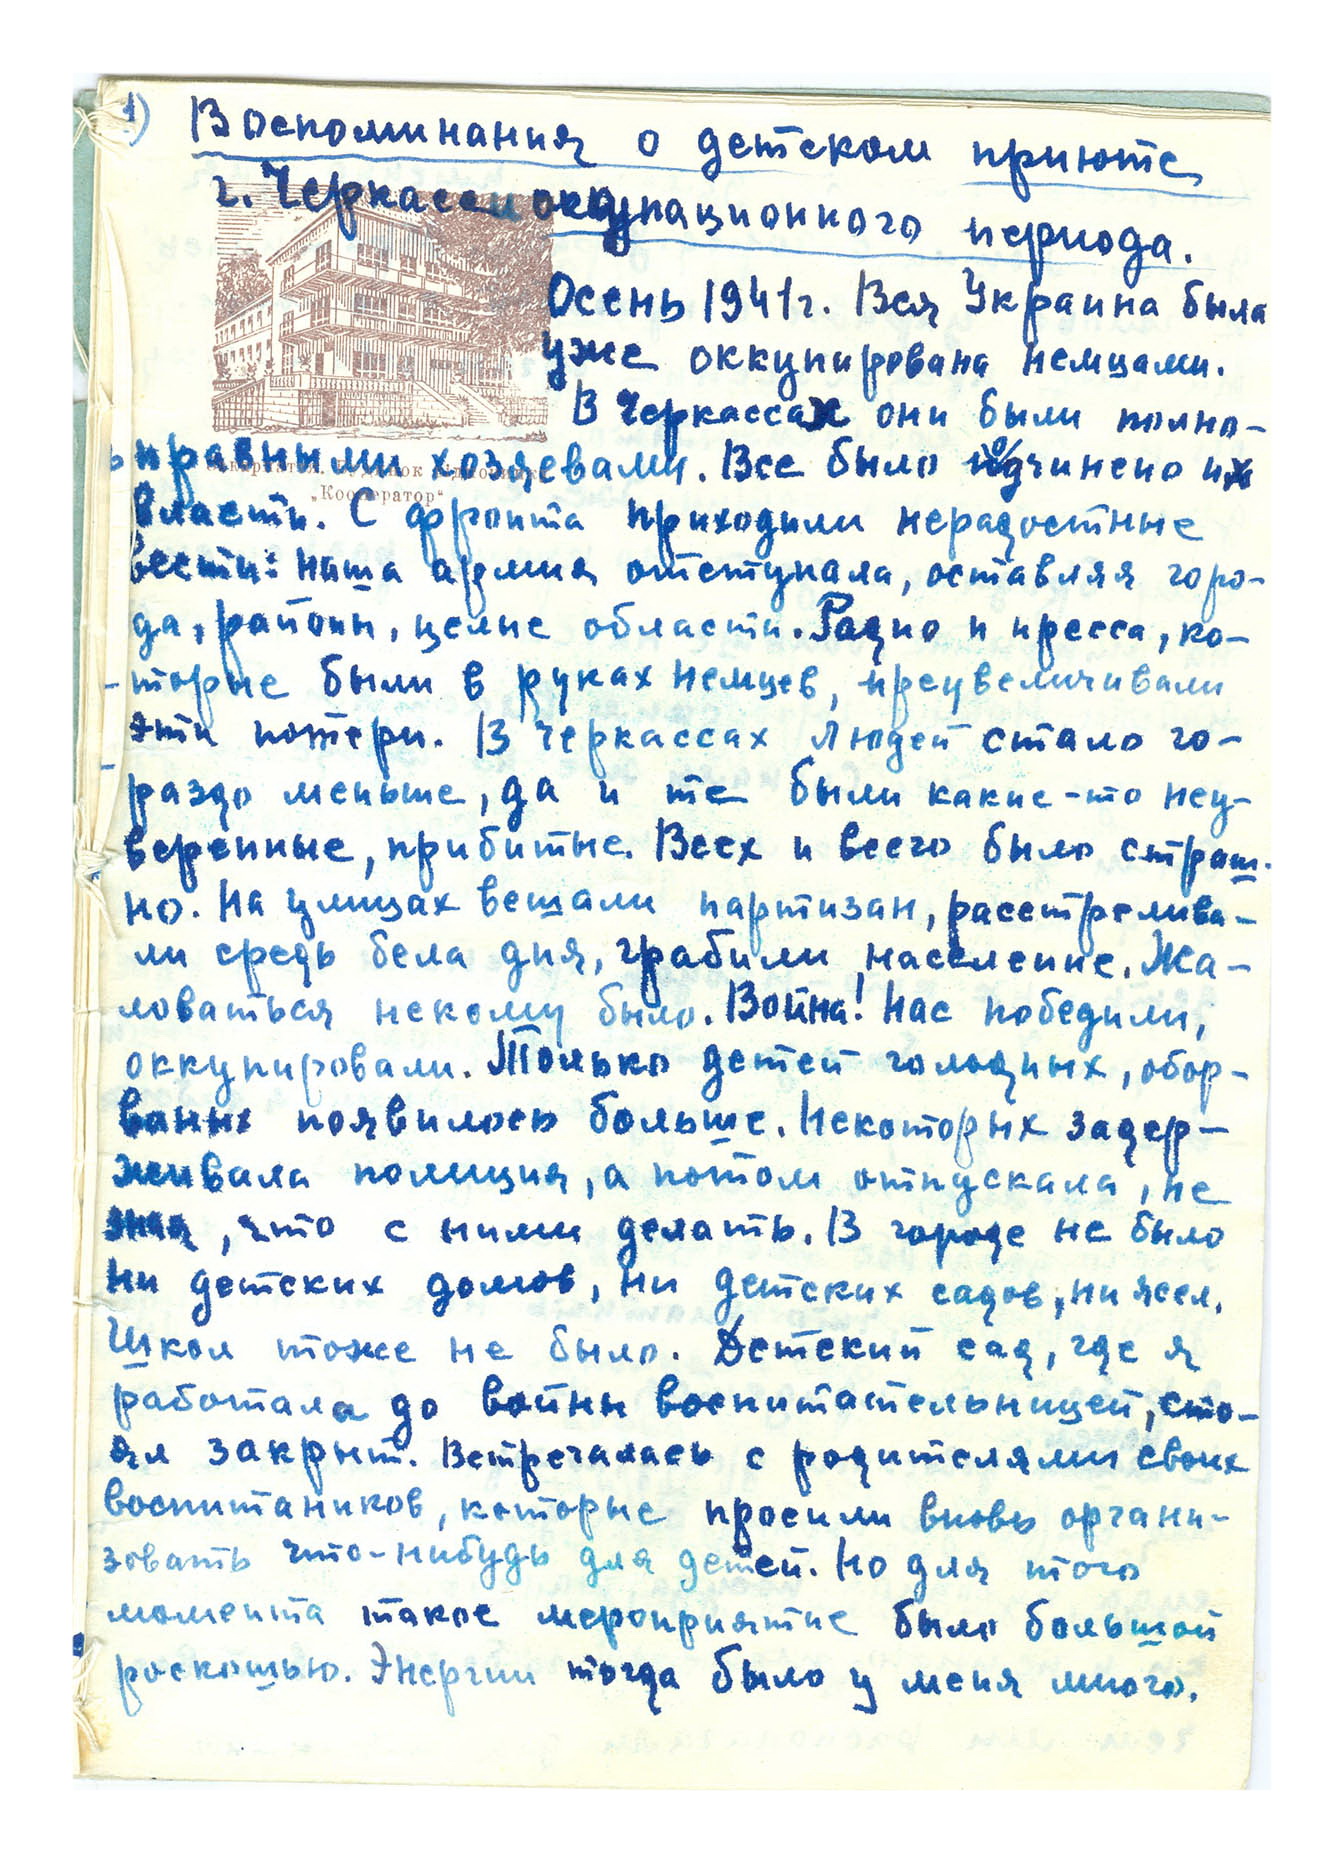 1) Воспоминания о детском приюте
г. Черкассы оккупационного периода.
Осень 1941г. Вся Украина была
уже оккупирована немцами.
В Черкассах они были полно-
правными хозяевами. Все было подчинено их
"Кооператор"
власти. С фронта приходили нерадостные
вести: наша армия отступала, оставляя горо-
да, районы, целые области. Радио и пресса, ко-
торые были в руках немцев, преувеличивали
эти потери. В Черкассах людей стало го-
раздо меньше, да и те были какие-то неу-
веренные, прибитые. Всех и всего было страш-
но. На улицах вешали партизан, расстрелива-
ли средь бела дня, грабили население. Жа-
ловаться некому было. Война! Нас победили,
оккупировали. Только детей голодных, обор-
ваных появилось больше. Некоторых задер-
живала полиция, а потом отпускала, не
зная, что с ними делать. В городе не было
ни детских домов, ни детских садов, ни ясел.
Школ тоже не было. Детский сад, где я
работала до войны воспитательницей, сто-
ял закрыт. Встречалась с родителями своих
воспитаников, которые просили вновь органи-
зовать что-нибудь для детей. Но для того
момента такое мероприятие было большой
роскошью. Энергии тогда было у меня много.